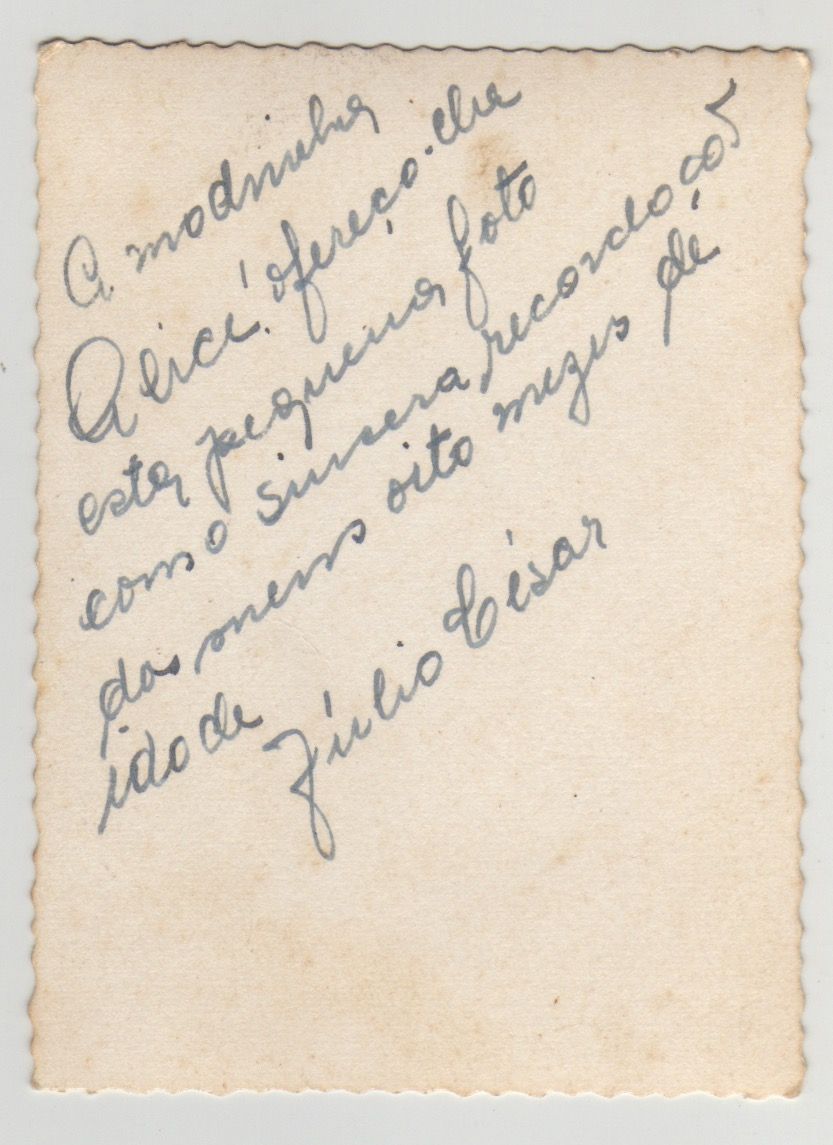 A madrinha
Alice, ofereço-lhe
esta pequena foto
como sincera recordação
dos meus oito mezes de
idade
Júlio César